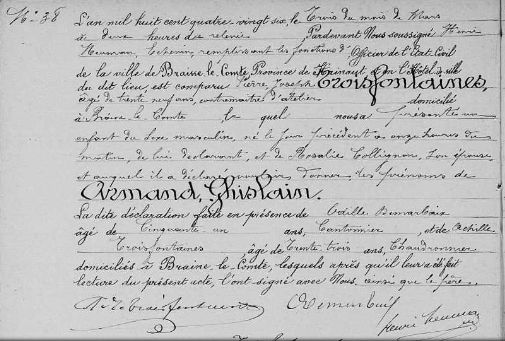 N° 38
L'an mil huit cent quatre vingt six, le Trois du mois de Mars
à deux heures de relevée, Pardevant Nous soussigné Henri
Neuman, Echevin, remplissant les fonctions d'Officier de l'Etat Civil
de la ville de Braine-le-Comte, Province de Hainaut et en l'Hôtel de ville
du dit lieu, est comparu Pierre Joseph Troisfontaines,
âgé de trente neuf ans, contremaître d'atelier domicilié
à Braine le Comte le quel nous a présenté un
enfant du sexe masculin, né le jour précédent à onze heures du
matin, de lui déclarant, et de Rosalie Collignon, son épouse
et auquel il a déclaré vouloir donner les prénoms de
Armand, Ghislain.
La dite déclaration faite en présence de Odille
âgé de Cinquante un ans, Cantonnier, et de Achille
Troisfontaines âgé de Trente trois ans, Chaudronnier
domiciliés à Braine-le-Comte, lesquels après qu'il leur a été fait
lecture du présent acte, l'ont signé avec Nous ainsi que le père.
Henri Neuman